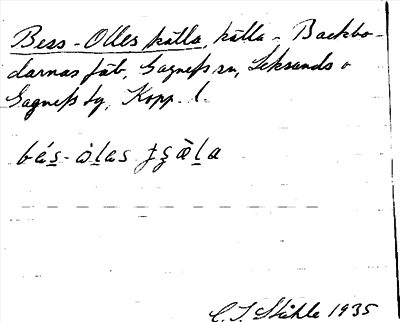 Bess-Olles källa, källa - Backbo-
darnas fäb., Gagnefs sn, Leksands o
Gagnefs tg, Kopp. l.
bás-òlas
C. I. Ståhle 1935